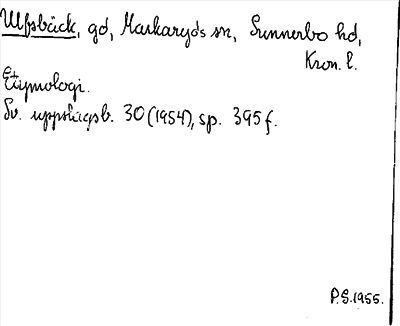 Ulfsbäck, gd, Markaryds sn, Sunnerbo hd,
Kron. l.
Etymologi.
Sv. uppslagsb. 30 (1954), sp. 395 f.
P.S. 1955.